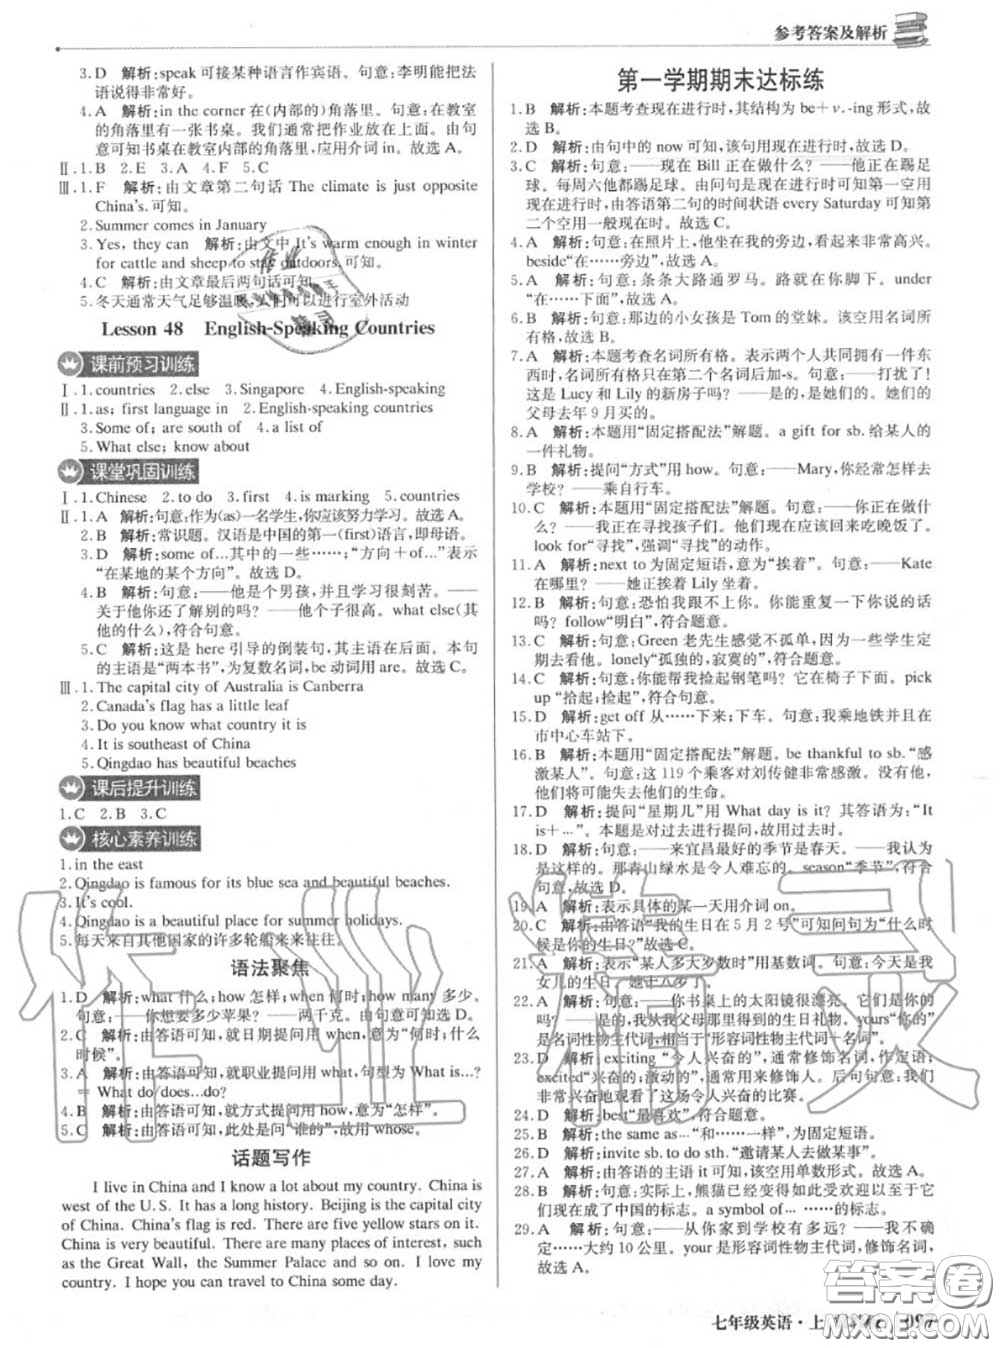 参考答案及解析
3. D　解析:speak 可接某种语言作宾语。句意:李明能把法
语说得非常好。
4. A　解析:in the corner 在(内部的)角落里。句意:在教室
的角落里有一张书桌。我们通常把作业放在上面。由句
意可知书桌在教室内部的角落里,应用介词 in。故选 A。
Ⅱ. 1. B　2. E　3. A　4. F　5. C
Ⅲ. 1. F　解析:由文章第二句话 The climate is just opposite
China's. 可知。
2. Summer comes in January
3. Yes, they can　解析:由文中 It's warm enough in winter
for cattle and sheep to stay outdoors. 可知。
4. C　解析:由文章最后两句话可知。
5. 冬天通常天气足够温暖,人们可以进行室外活动
Lesson 48　English-Speaking Countries
课前预习训练
Ⅰ. 1. countries　2. else　3. Singapore　4. English-speaking
Ⅱ. 1. as; first language in　2. English-speaking countries
3. Some of; are south of　4. a list of
5. What else; know about
课堂巩固训练
Ⅰ. 1. Chinese　2. to do　3. first　4. is marking　5. countries
Ⅱ. 1. A　解析:句意:作为(as)一名学生,你应该努力学习。故选 A。
2. B　解析:常识题。汉语是中国的第一(first)语言,即母语。
3. D　解析:some of…其中的一些……;“方向＋of…”表示
“在某地的某个方向”。故选 D。
4. B　解析:句意:——他是个男孩,并且学习很刻苦。——
关于他你还了解别的吗?——他个子很高。what else(其
他的什么),符合句意。
5. C　解析:这是 here 引导的倒装句,其主语在后面。本句
的主语是“两本书”,为复数名词,be 动词用 are。故选 C。
Ⅲ. 1. The capital city of Australia is Canberra
2. Canada's flag has a little leaf
3. Do you know what country it is
4. It is southeast of China
5. Qingdao has beautiful beaches
课后提升训练
1. C　2. B　3. C
核心素养训练
1. in the east
2. Qingdao is famous for its blue sea and beautiful beaches.
3. It's cool.
4. Qingdao is a beautiful place for summer holidays.
5. 每天来自其他国家的许多轮船来来往往。
语法聚焦
1. D　解析:what 什么;how 怎样;when 何时;how many 多少。
句意:——你想要多少苹果?——两千克。由句意可知选 D。
2. C　解析:由答语可知,就日期提问用 when,意为“何时;什么
时候”。
3. A　解析:由答语可知,就职业提问用 what,句型为 What is…?
＝ What do/does…do?
4. B　解析:由答语可知,就方式提问用 how,意为“怎样”。
5. C　解析:由答语可知,此处是问“谁的”,故用 whose。
话题写作
I live in China and I know a lot about my country. China is
west of the U. S. It has a long history. Beijing is the capital city
of China. China's flag is red. There are five yellow stars on it.
China is very beautiful. There are many places of interest, such
as the Great Wall, the Summer Palace and so on. I love my
country. I hope you can travel to China some day.
第一学期期末达标练
1. B　解析:本题考查现在进行时,其结构为 be＋v.-ing 形式,故
选 B。
2. D　解析:由句中的 now 可知,该句用现在进行时,故选 D。
3. C　解析:句意:——现在 Bill 正在做什么?——他正在踢足
球。每周六他都踢足球。由问句是现在进行时可知第一空用
现在进行时,由答语第二句的时间状语 every Saturday 可知第
二个空用一般现在时。故选 C。
4. A　解析:句意:在照片上,他坐在我的旁边,看起来非常高兴。
beside“在……旁边”,故选 A。
5. A　解析:句意:条条大路通罗马。路就在你脚下。under
“在……下面”,故选 A。
6. B　解析:句意:那边的小女孩是 Tom 的堂妹。该空用名词所
有格,故选 B。
7. A　解析:本题考查名词所有格。表示两个人共同拥有一件东
西时,名词所有格只在第二个名词后加-s。句意:——打扰了!
这是 Lucy 和 Lily 的新房子吗?——是的,是她们的。她们的
父母去年 9 月买的。
8. A　解析:本题用“固定搭配法”解题。a gift for sb. 给某人的
一件礼物。
9. B　解析:提问“方式”用 how。句意:——Mary,你经常怎样去
学校?——乘自行车。
10. C　解析:本题用“固定搭配法”解题。句意:——你正在做什
么?——我正在寻找孩子们。他们现在应该回来吃晚饭了。
look for“寻找”,强调“寻找”的动作。
11. A　解析:next to 为固定短语,意为“挨着”。句意:——Kate
在哪里?——她正挨着 Lily 坐着。
12. B　解析:句意:恐怕我跟不上你。你能重复一下你说的话
吗? follow“明白”,符合题意。
13. C　解析:句意:Green 老先生感觉不孤单,因为一些学生定
期去看他。lonely“孤独的,寂寞的”,符合题意。
14. C　解析:句意:你能帮我捡起钢笔吗?它在椅子下面。pick
up “拾起;捡起”,符合句意。
15. D　解析:get off 从……下来;下车。句意:我乘地铁并且在
市中心车站下。
16. B　解析:本题用“固定搭配法”解题。be thankful to sb.“感
激某人”。句意:这 119 个乘客对刘传健非常感激。没有他,
他们将会失去他们的生命。
17. D　解析:提问“星期几”用 What day is it? 其答语为:“It
is＋…”。本题是对过去进行提问,故用过去时。
18. D　解析:句意:——来宜昌最好的季节是春天。——我认为
是的。那青山绿水是令人难忘的。season“季节”,符合
句意,故选 D。
19. A　解析:表示具体的某一天用介词 on。
20. C　解析:由答语“我的生日在 5 月 2 号”可知问句为“什么时
候是你的生日?”故选 C。
21. A　解析:表示“某人多大岁数时”用基数词。句意:今天是我
女儿的生日。她十八岁了。
22. A　解析:句意:——你书桌上的太阳镜很漂亮。它们是你的
吗?——是的,我从我父母那里得到的生日礼物。yours“你的”
是名词性物主代词,相当于“形容词性物主代词＋名词”。
23. D　解析:exciting “令人兴奋的”,通常修饰名词,作定语;
excited“兴奋的;激动的”,通常用来修饰人。后句句意:我们
非常兴奋地观看了这场令人兴奋的比赛。
24. D　解析:best“最喜欢”,符合题意。
25. B　解析:the same as…“和……一样”,为固定短语。
26. D　解析:invite sb. to do sth.“邀请某人去做某事”。
27. A　解析:由答语的主语 it 可知,该空用单数形式。故选 A。
28. B　解析:句意:实际上,熊猫已经变得如此受欢迎以至于它
们现在成了中国的标志。a symbol of… ……的标志。
29. A　解析:句意:——从你家到学校有多远?——我不确
定……大约 10 公里。your 是形容词性物主代词,修饰名词,
故选 A。
七年级英语·上
作业精灵
答案圈